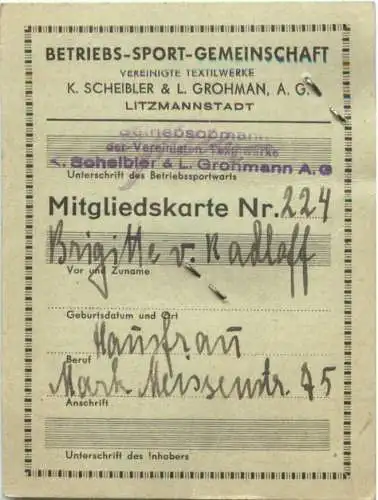 BETRIEBS-SPORT-GEMEINSCHAFT
VEREINIGTE TEXTILWERKE
K. SCHEIBLER & L. GROHMAN, A. G.
LITZMANNSTADT
Betriebsobmann
der Vereinigten Textilwerke
K. Scheibler & L. Grohmann A.G
Unterschrift des Betriebssportwarts
Mitgliedskarte Nr. 224
Brigitte v. Radloff
Vor und Zuname
Geburtsdatum und Ort
Hausfrau
Beruf
Mark Meissenstr. 75
Anschrift
Unterschrift des Inhabers